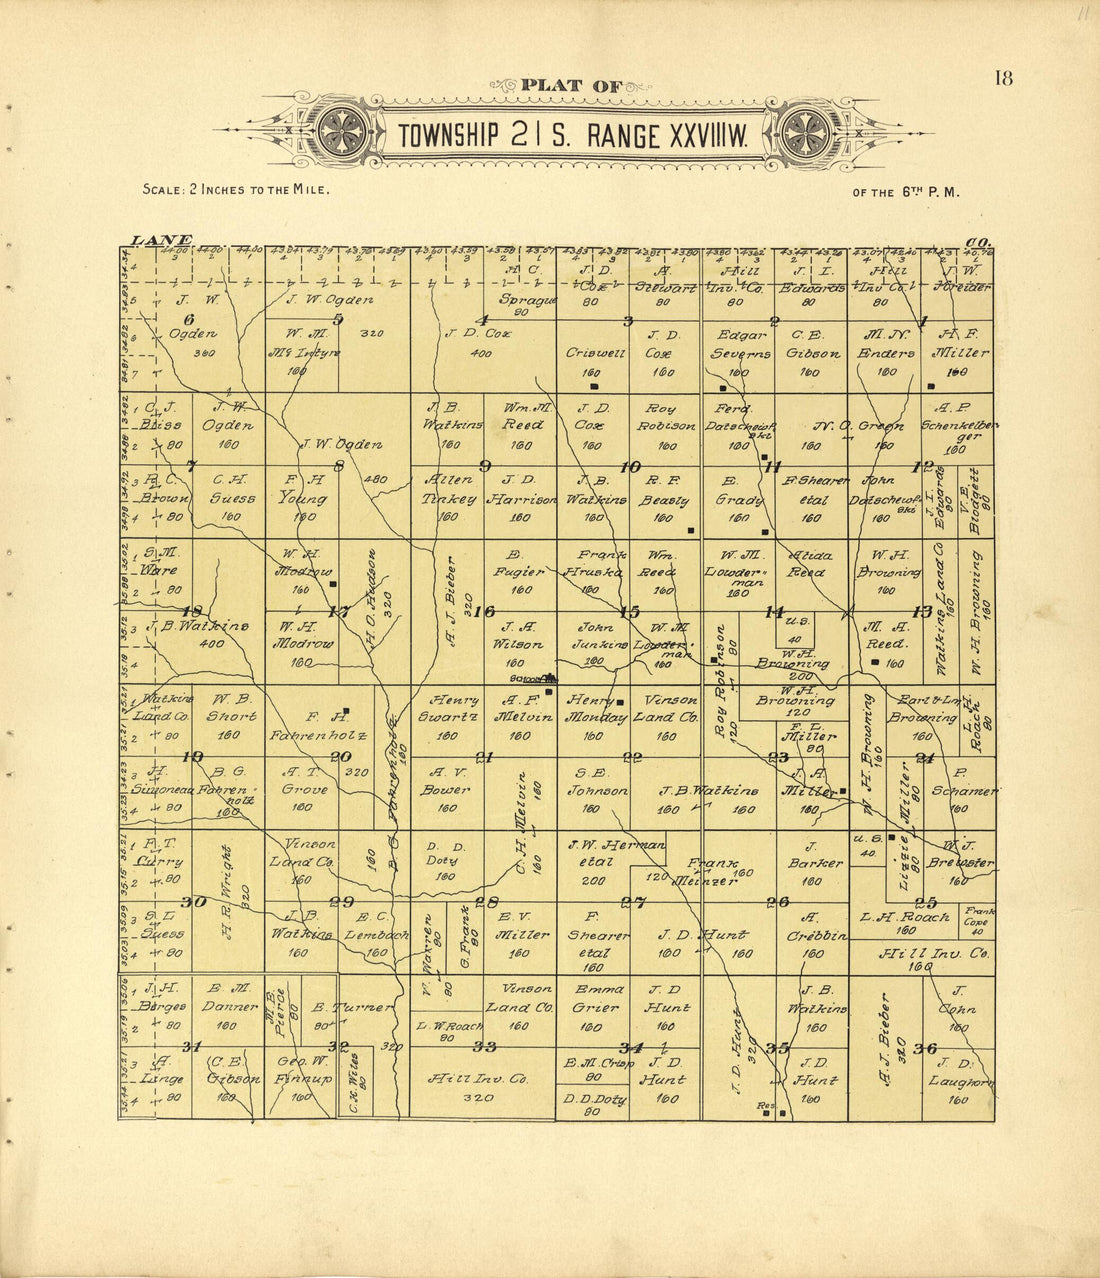 11
18
PLAT OF
TOWNSHIP 21 S. RANGE XXVIII W.
SCALE: 2 INCHES TO THE MILE.
OF THE 6TH P. M.
LANE
CO.
J. W.
Ogden
360
6
J. W. Ogden
5
W. M.
Mc Intyre
160
320
H. C.
Sprague
80
4
J. D. Cox
400
J. D.
Cox
80
A.
Stewart
80
3
Criswell
160
J. D.
Cox
160
Hill
Inv. Co.
80
J. I.
Edwards
80
2
Edgar
Severns
160
C. E.
Gibson
160
Hill
Inv Co.
80
J. W.
Kreider
1
M. N.
Enders
160
H. F.
Miller
160
C. J.
Bliss
80
J. W.
Ogden
160
7
R. C.
Brown
80
C. H.
Suess
160
J. W. Ogden
480
8
F. H
Young
160
J. B.
Watkins
160
Wm. M.
Reed
160
9
Allen
Tinkey
160
J. D.
Harrison
160
J. D.
Cox
160
Roy
Robison
160
10
J. B.
Watkins
160
R. F.
Beasly
160
Ferd.
160
11
E.
Grady
160
F. Shearer
etal
160
N. O. Green
160
A. P.
Schenkelber
ger
160
12
John
160
J. I.
Edwards
80
V. E.
Blodgett
80
S. M.
Ware
80
18
J. B. Watkins
400
W. H.
Modrow
160
17
W. H.
Modrow
160
H. O. Hudson
320
A. J. Bieber
320
16
E.
Fugier
160
J. A.
Wilson
160
Frank
Hruska
160
Wm.
Reed
160
15
John
Junkins
160
W. M
Lowder-
man
160
W. M.
Lowder-
man
160
Alida
Reed
160
14
U.S.
40
Roy Robinson
80
120
W. H.
Browning
200
W. H.
Browning
160
13
M. A.
Reed.
160
Watkins Land Co
160
W. H. Browning
160
Watkins
Land Co.
80
W. B.
Short
160
19
H.
Simoneau
80
B. G.
Fahren-
holz
160
F. H.
Fahrenholz
320
20
A. T.
Grove
160
B. G. Fahrenholz
160
160
Henry
Swartz
160
A. F.
Melvin
160
21
A. V.
Bower
160
C. H. Melvin
160
160
Henry
Monday
160
Vinson
Land Co.
160
22
S. E.
Johnson
160
J. B. Watkins
160
160
W. H.
Browning
120
F. L.
Miller
80
23
J. A.
Miller
160
W. H. Browning
160
Browning
160
L. H.
Roach
80
24
Lizzie Miller
80
80
P.
Schamer
160
F. T.
Curry
80
30
S. L
Suess
80
H. R. Wright
320
Vinson
Land Co.
160
29
J. B.
Watkins
160
E. C.
Lembach
160
D. D.
Doty
160
28
V. Warren
80
80
G. Frank
80
E. V.
Miller
160
J. W. Herman
etal
200
120
Frank
Meinzer
160
27
F.
Shearer
etal
160
J. D. Hunt
160
160
J.
Barker
160
26
A.
Cribbin
160
U.S.
40
W. J.
Brewster
160
25
L. H. Roach
160
Frank
Cope
40
Hill Inv. Co.
160
J. H.
Borges
80
E M.
Danner
160
31
A.
Linge
80
C. E.
Gibson
160
M. E.
Pierce
80
E. Turner
80
320
32
Geo. W.
Finnup
160
C. H. Wiles
80
Vinson
Land Co.
160
L. W Roach
80
33
Hill Inv. Co.
320
Emma
Grier
160
J. D
Hunt
160
34
E. M. Crisp
80
D. D. Doty
80
J. D.
Hunt
160
J. D. Hunt
320
J. B.
Watkins
160
35
J. D.
Hunt
160
Res.
A. J. Bieber
320
J.
Cohn
160
36
J. D.
Laughorn
160